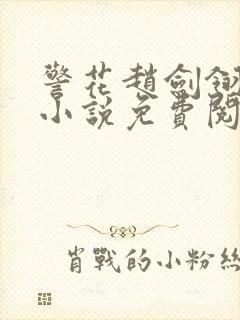 警花趙劍釵
小說免費閱
肖戰的小粉絲